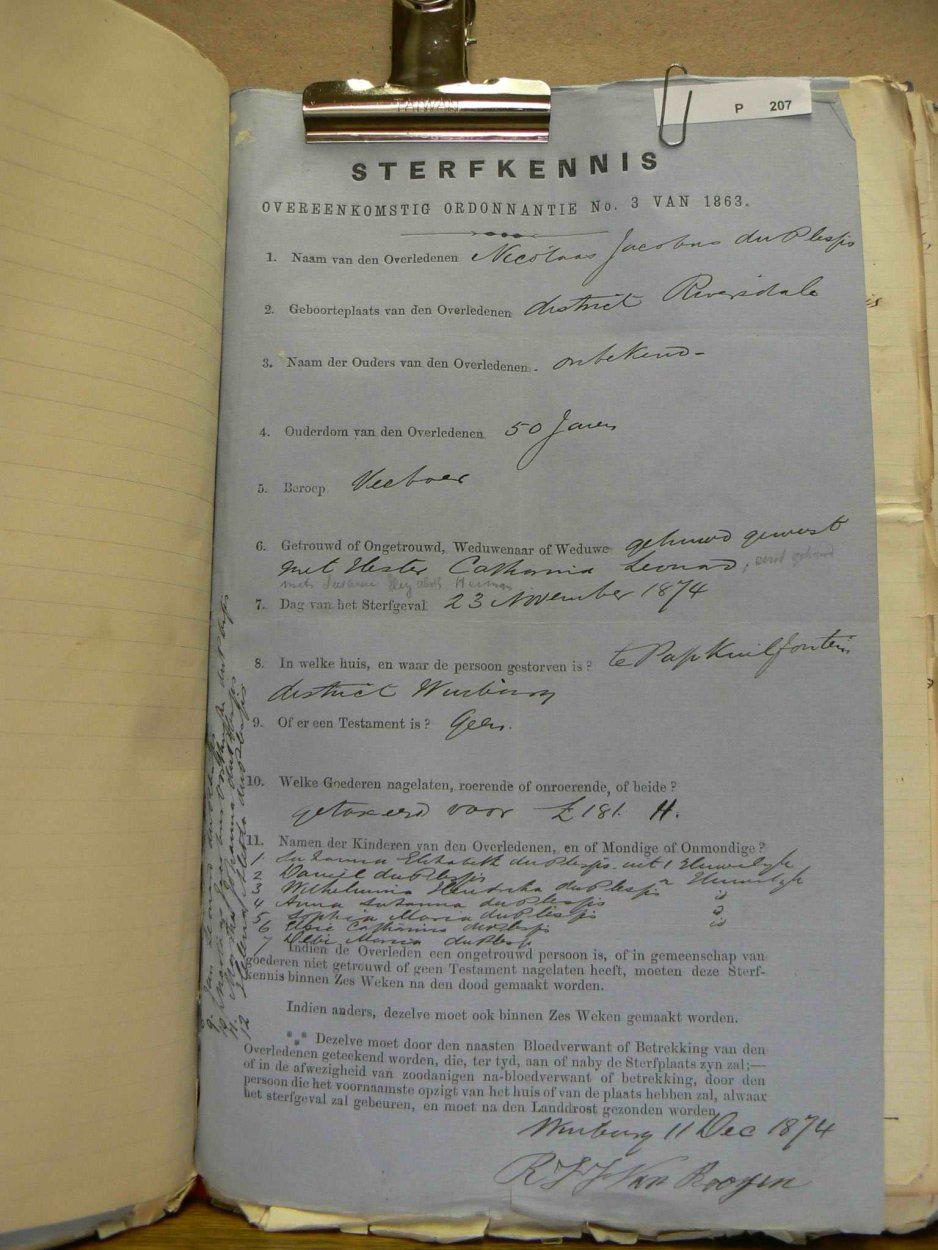 TAIWAN
P 207
STERFKENNIS
OVEREENKOMSTIG ORDONNANTIE No. 3 VAN 1863.
1. Naam van den Overledenen Nicolaas Jacobus du Plessis
2. Geboorteplaats van den Overledenen district Riversdale
3. Naam der Ouders van den Overledenen. onbekend-
4. Ouderdom van den Overledenen 50 Jaren
5. Beroep Veeboer
6. Getrouwd of Ongetrouwd, Weduwenaar of Weduwe gehuwd geweest
met Hester Catharina Leonard, eerst gehuwd
met Susanna Elizabeth
7. Dag van het Sterfgeval 23 November 1874
8. In welke huis, en waar de persoon gestorven is? te Papkuilfontein
district Winburg
9. Of er een Testament is? Geen.
10. Welke Goederen nagelaten, roerende of onroerende, of beide?
getaxeerd voor £181.
11. Namen der Kinderen van den Overledenen, en of Mondige of Onmondige?
1 Susanna Elizabeth du Plessis uit 1 Huwelijk
2 Daniel du Plessis " Huwelijk
3 Wilhelmina Hendrika du Plessis
4 Anna Susanna du Plessis
5 Sophia Maria du Plessis
6 Elsie Catharina du Plessis
7 Maria du Plessis
9. Jan
10
11. Martha Johanna du Plessis
12 Helena Aletta du Plessis
Indien de Overleden een ongetrouwd persoon is, of in gemeenschap van
goederen niet getrouwd of geen Testament nagelaten heeft, moeten deze Sterf-
kennis binnen Zes Weken na den dood gemaakt worden.
Indien anders, dezelve moet ook binnen Zes Weken gemaakt worden.
Dezelve moet door den naasten Bloedverwant of Betrekking van den
Overledenen geteekend worden, die, ter tyd, aan of naby de Sterfplaats zyn zal;—
of in de afwezigheid van zoodanigen na-bloedverwant of betrekking, door den
persoon die het voornaamste opzigt van het huis of van de plaats hebben zal, alwaar
het sterfgeval zal gebeuren, en moet na den Landdrost gezonden worden.
Winburg 11 Dec 1874
Van Rooyen